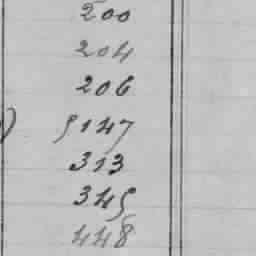 200
204
206
5147
313
345
448